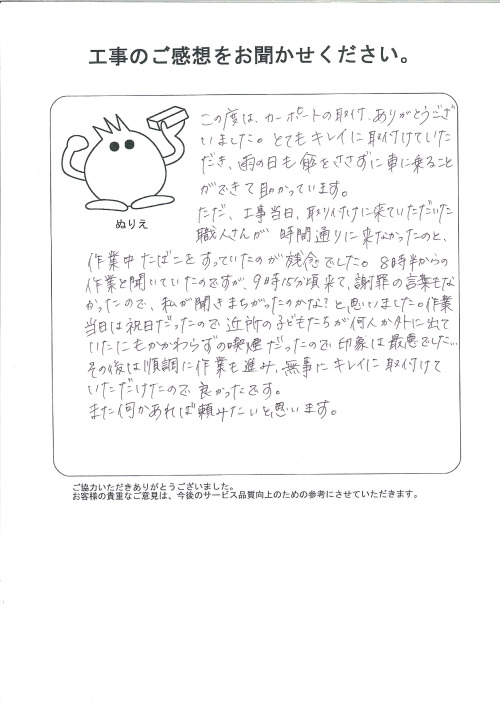 工事のご感想をお聞かせください。
この度は、カーポートの取付、ありがとうござ
いました。とてもキレイに取付けていた
だき、雨の日も傘をささずに車に乗ること
ができて助かっています。
ただ、工事当日、取り付けに来ていただいた
職人さんが時間通りに来なかったのと、
ぬりえ
作業中たばこをすっていたのが残念でした。8時半からの
作業と聞いていたのですが、9時15分頃来て、謝罪の言葉もな
かったので、私が聞きまちがったのかな?と思いました。作業
当日は祝日だったので近所の子どもたちが何人か外に出て
いたにもかかわらずの喫煙だったので印象は最悪でした…
その後は順調に作業も進み、無事にキレイに取付けて
いただけたので良かったです。
また何かあれば頼みたいと思います。
ご協力いただきありがとうございました。
お客様の貴重なご意見は、今後のサービス品質向上のための参考にさせていただきます。